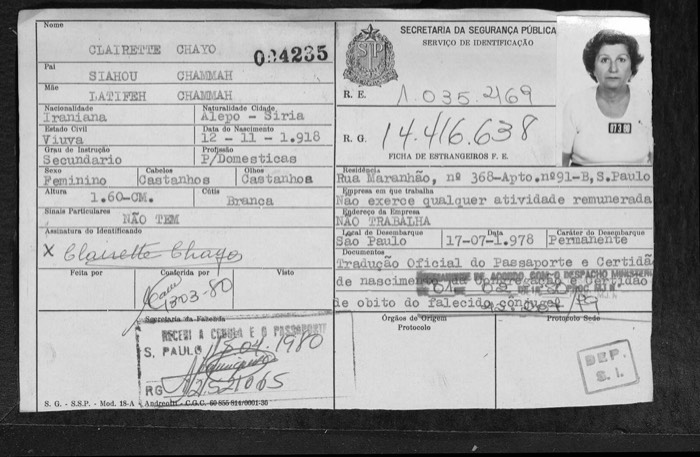 Nome
CLAIRETTE CHAYO
004235
Pai
SIAHOU CHAMMAH
Mãe
LATIFEH CHAMMAH
Nacionalidade Naturalidade Cidade
Iraniana Alepo - Siria
Estado Civil Data do Nascimento
Viuva 12 - 11 - 1.918
Grau de Instrução Profissão
Secundario P/Domesticas
Sexo Cabelos Olhos
Feminino Castanhos Castanhos
Altura Cútis
1.60-CM. Branca
Sinais Particulares
NÃO TEM
Assinatura do Identificando
X Clairette Chayo
Feita por Conferida por Visto
1303-80
Secretaria da Fazenda
RECEBI A CEDULA E O PASSAPORTE
S. PAULO 1980
RG
S. G. - S.S.P. - Mod. 18-A - Andreotti - C.G.C.
SECRETARIA DA SEGURANÇA PÚBLICA
SERVIÇO DE IDENTIFICAÇÃO
SP
R. E. 1.035.2469
R. G. 14.416.638
FICHA DE ESTRANGEIROS F. E.
Residência
Rua Maranhão, nº 368-Apto.nº91-B, S.Paulo
Empresa em que trabalha
Não exerce qualquer atividade remunerada
Endereço da Empresa
NÃO TRABALHA
Local de Desembarque Data Caráter do Desembarque
São Paulo 17-07-1.978 Permanente
Documentos
Tradução Oficial do Passaporte e Certidã
de nascimento da Congregação e Certidão
PERMANENTE DE ACORDO COM O DESPACHO
de obito do falecido conjuge/
Órgãos de Origem
Protocolo
Protocolo Sede
DEP.
S. I.